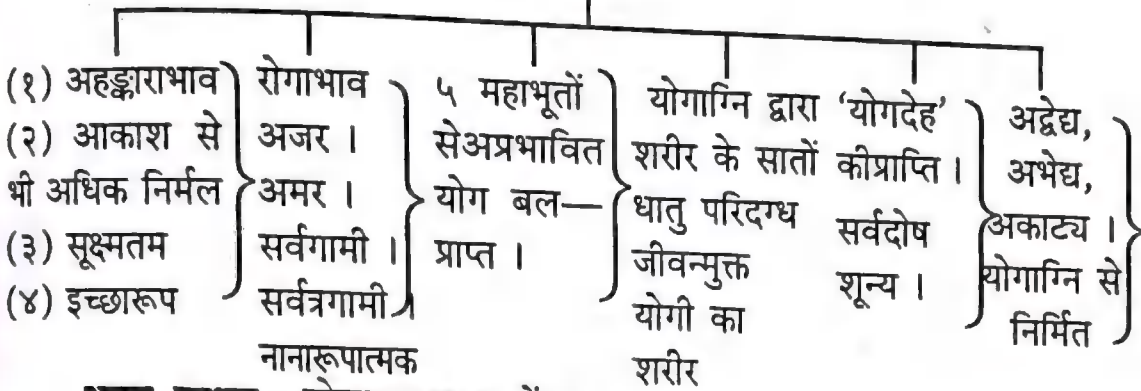 (१) अहङ्काराभाव
(२) आकाश से
भी अधिक निर्मल
(३) सूक्ष्मतम
(४) इच्छारूप
रोगाभाव
अजर ।
अमर ।
सर्वगामी ।
सर्वत्रगामी ।
नानारूपात्मक
५ महाभूतों
सेअप्रभावित
योग बल—
प्राप्त ।
योगाग्नि द्वारा
शरीर के सातों
धातु परिदग्ध
जीवन्मुक्त
योगी का
शरीर
‘योगदेह’
कीप्राप्ति ।
सर्वदोष
शून्य ।
अद्वेद्य,
अभेद्य,
अकाट्य ।
योगाग्नि से
निर्मित